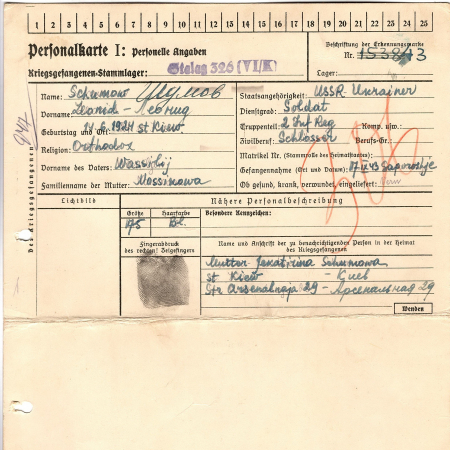 1 2 3 4 5 6 7 8 9 10 11 12 13 14 15 16 17 18 19 20 21 22 23 24 25
Personalkarte I: Personelle Angaben
Kriegsgefangenen-Stammlager: Stalag 326 (VI/K)
Beschriftung der Erkennungsmarke
Nr. 153843
Lager:
Des Kriegsgefangenen
Name: Schumow Шумов
Vorname: Leonid - Леонид
Geburtstag und -Ort: 1924 st Kiew
Religion: Orthodox
Vorname des Vaters: Wassilij
Familienname der Mutter:
Staatsangehörigkeit: USSR. Ukrainer
Dienstgrad: Soldat
Truppenteil: 2 Inf Reg Komp. usw.:
Zivilberuf: Schlosser Berufs-Gr.:
Matrikel Nr. (Stammrolle des Heimatstaates):
Gefangennahme (Ort und Datum): 43 Saporoshje
Ob gesund, krank, verwundet, eingeliefert:
Lichtbild
Nähere Personalbeschreibung
Größe Haarfarbe Besondere Kennzeichen:
175 Bl.
Fingerabdruck
des rechten! Zeigefingers
Name und Anschrift der zu benachrichtigenden Person in der Heimat
des Kriegsgefangenen
Mutter Jekatirina Schumowa
st Kiew - Киев
Str Arsenalnaja 29 - Арсенальная 29
Wenden